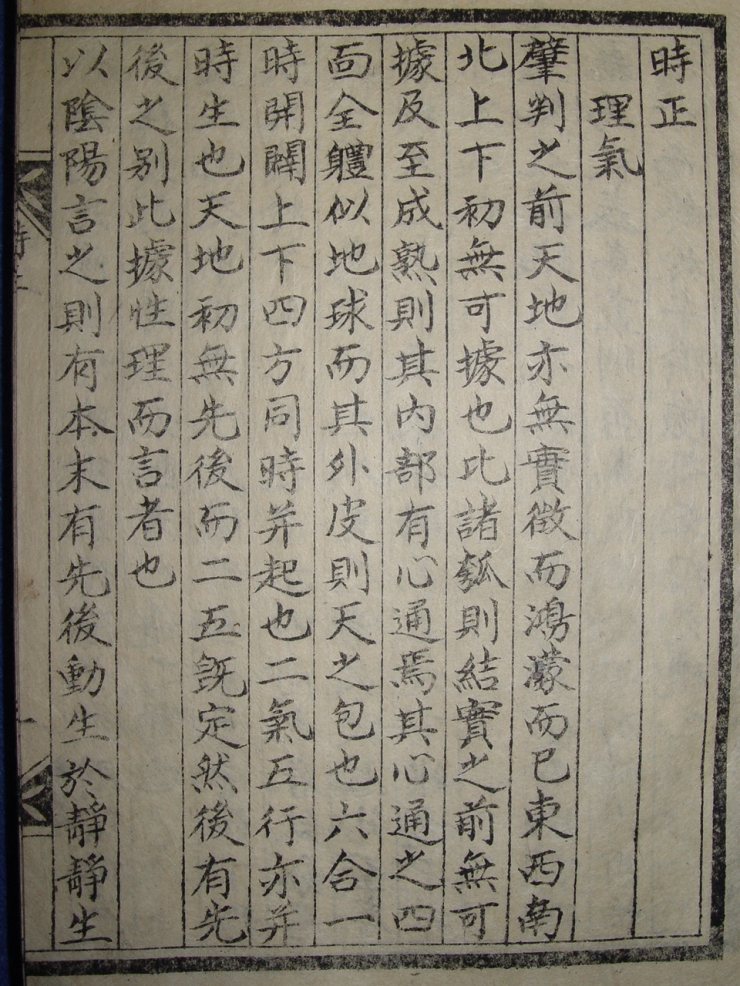 時正
理氣
肇判之前天地亦無實徵而鴻濛而已東西南
北上下初無可據也比諸瓠則結實之前無可
據及至成熟則其內部有心通焉其心通之四
面全體似地球而其外皮則天之包也六合一
時開闢上下四方同時并起也二氣五行亦并
時生也天地初無先後而二五旣定然後有先
後之别此據性理而言者也
以陰陽言之則有本末有先後動生於靜靜生